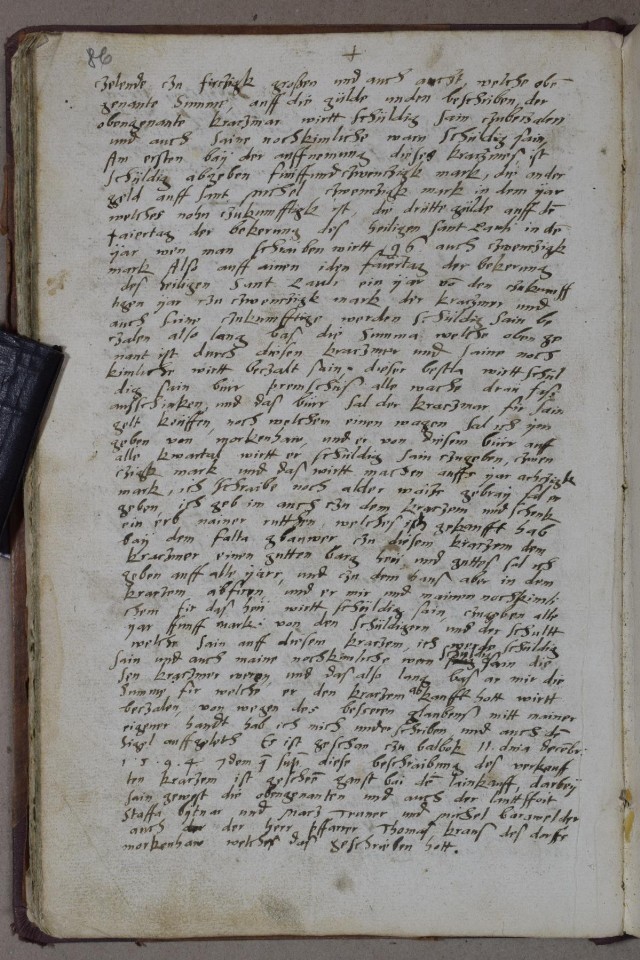 86
+
czelende czu fierczigk großen und auch auczt, welche obe
genante Summe, auff die gülde unden beschriben, der
obengenante kraczmar wirtt schüldig sain czubeczalen
und auch saine nochkimliche warn schüldig sain
Am ersten bay der auffnemung dieses kraczmes ist
schüldig abgeben funffundczwenczigk mark, die ander
geld auff sant michel czwenczigk mark in dem yar
welches nohn czukumfftigk ist, die drötte gülde auff de
faiertag der bekerung des heiligen sant Pauli in de
yar wen man schraiben wirtt 96 auch czwenczigk
mark Alß auff ainen iden faiertag der bekerung
des heiligen Sant Pauli ein yar vo den czukumff
tigen yar czu czwenczigk mark der kraczmer und
auch saine czukumfftige werden schüldig sain be
czalen also lang bas die Summa welche oben ge
nant ist durch diesen kraczmer und saine noch
kimliche wirtt beczalt sain, dieser bestla wirtt schül
dig sain burr premschüs alle wache dran fos
außschinken, und das bürr sal der kraczmar für sain
gelt köüffen, noch welchem einen wagen sal ich ym
geben von morkenhaw, und er von diesem bürr auff
alle kwartal wirtt er schüldig sain czugeben, czwen
czigk mark und das wirtt machen auffs yar achczigk
mark, ich schraibe noch alder waise gebrau sal er
geben, ich geb im auch czu dem kraczem und schenk
ein erb nainer rutthen, welches ich gekaufft hab
bay dem falta glauwer czu diesem kraczem dem
kraczmer einen gutten barg heu und guttes sal ich
geben auff alle yarr, und czu dem haus aber in dem
kraczem abfiren, und er mir und mainen nochkimli
chem für das heü wirtt schuldig sain, czugeben alle
yar fimff mark: von den schuldigern und der schultt
welche sain auff diesem kraczem, ich werde schuldig
sain und auch maine nochkimliche wern schuldig sain die
sen kraczmer weren, und das also lang bas ar mir die
Summe, für welche er den kraczem abkaufft hott wirtt
beczalen, von wegen des besseren glaubens mitt nainer
eigener handt hab ich mich underschriben und auch de
sigel auffgeleth Er ist geschan czu balbok 11. dnia decebr:
1 5 9 4. Idem q sup: diese beschraibung des verkauff
ten kraczem ist geschen ganst bai de lainkauff, darbey
sain gewest die obengenanten und auch der lanttfoit
Staffa bytnar und marcz Truner und michel baramelder
auch der der herr pffarrer Thomas krans des dorffs
morkenhaw welches das geschriben hott.